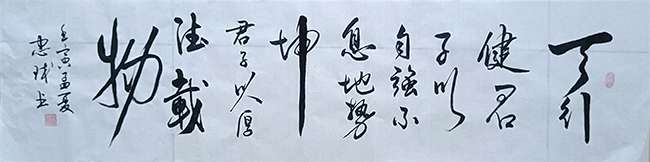 天行
健君
子以
自强不
息地势
坤
君子以厚
德載
物
壬寅孟夏